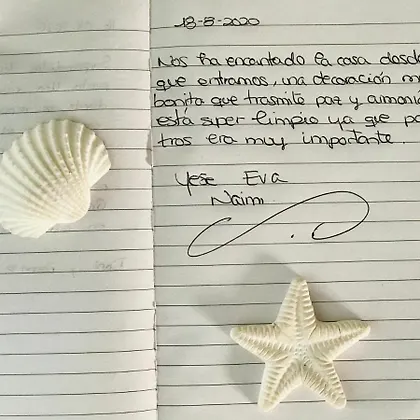 18-8-2020
Nos ha encantado la casa desde
que entramos, una decoración m
bonita que trasmite paz y armoní
está super limpio ya que po
tros era muy importante.
Yese Eva
Naim